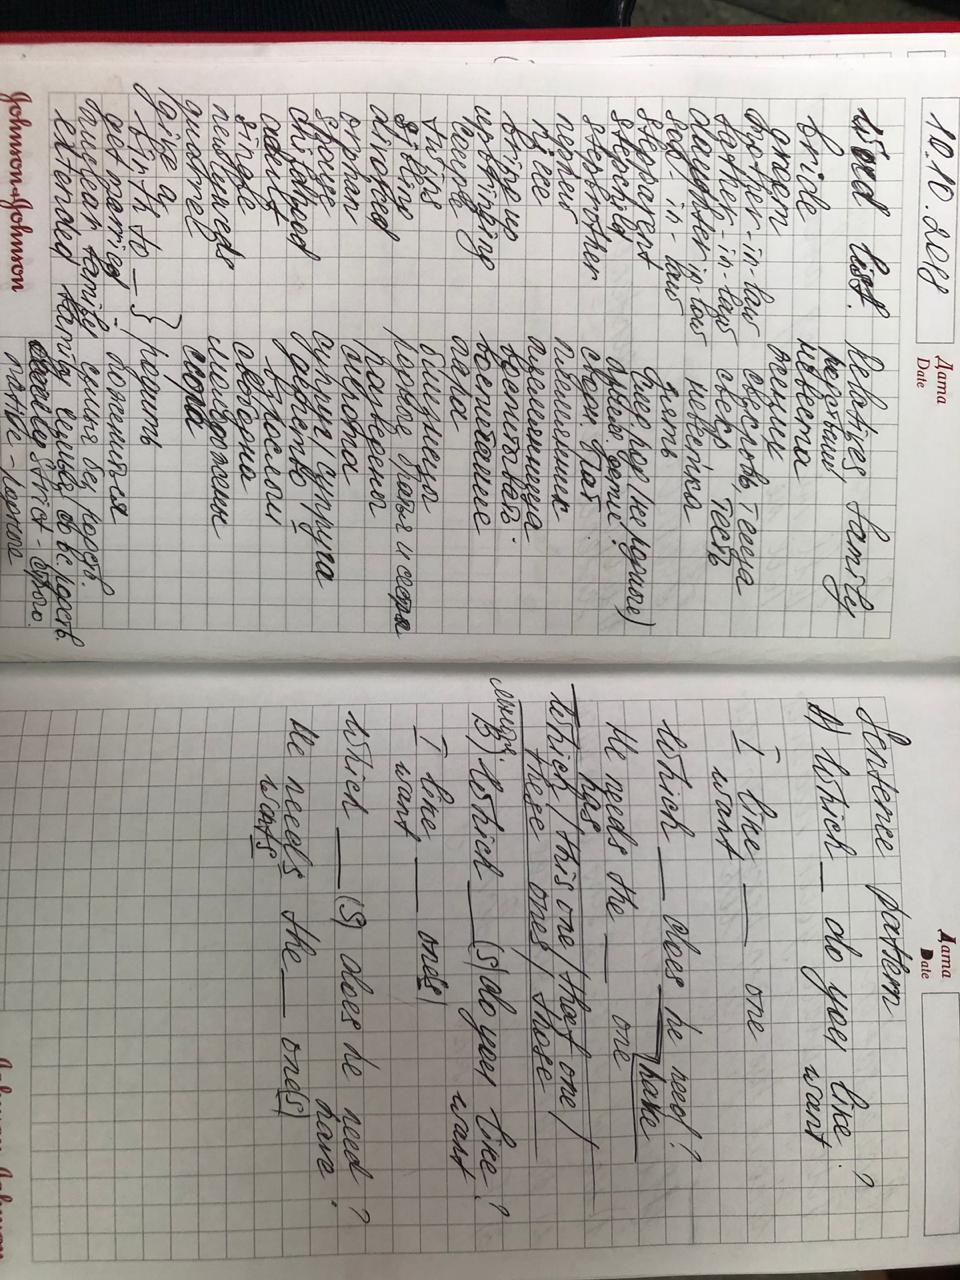 10.10.2018
Дата
Date
Word list. Relatives, family
родствен,
bride невеста
groom жених
mother-in-law свекровь, теща
father-in-law свекр, тесть
daughter in-law невестка
son-in-law зять
stepparent след. род. (не родные)
stepchild прием. дети
stepbrother сводн. брат
nephew племянник
niece племянница
bring up воспитывать
upbringing воспитание
couple пара
twins близнецы
sibling родные братья и сестра
divorced разведены
orphan сирота
spouse супруг/супруга
childhood детство
adult взрослый
single свободна
newlyweds молодожены
quarrel ссора
give a
birth to _ } родить
get married - пожениться
nuclear family семья без родств.
extended family семья со вс. родств.
strict - строго.
native - родные
Johnson & Johnson
Дата
Date
Sentence pattern
A) Which _ do you like ?
want
I like ___ one
want
Which ___ does he need?
have
He needs the ___ one
has
Which / this one / that one /
these ones / those
B) Which ___(s) do you like ?
want
I like ___ one(s)
want
Which ___ (s) does he need ?
have
He needs the ___ one(s)
wants
Johnson & Johnson